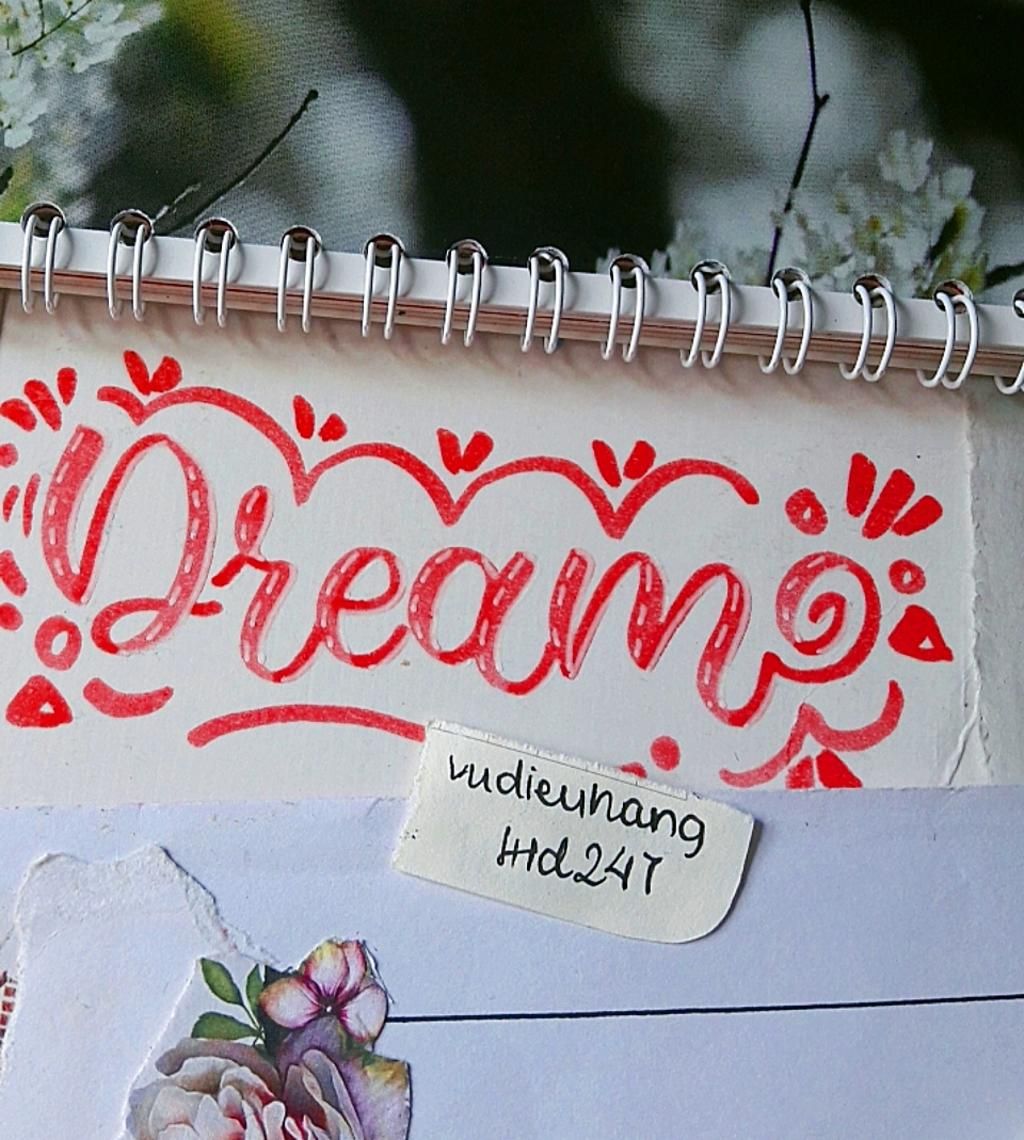 Dream
vudieuhang
Hd247